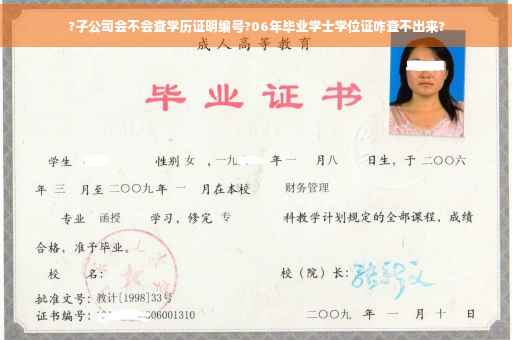 ?子公司会不会查学历证明编号?06年毕业学士学位证咋查不出来?
成人高等教育
毕业证书
学生 性别 女 ，一九 年一 月八 日生，于二〇〇六
年 三 月至二〇〇九年 一 月在本校 财务管理
专业 函授 学习，修完 专 科教学计划规定的全部课程，成绩
合格，准予毕业。
校 名： 校（院）长：
批准文号：教计[1998]33号
证书编号： 06001310 二〇〇九 年 一 月 十 日